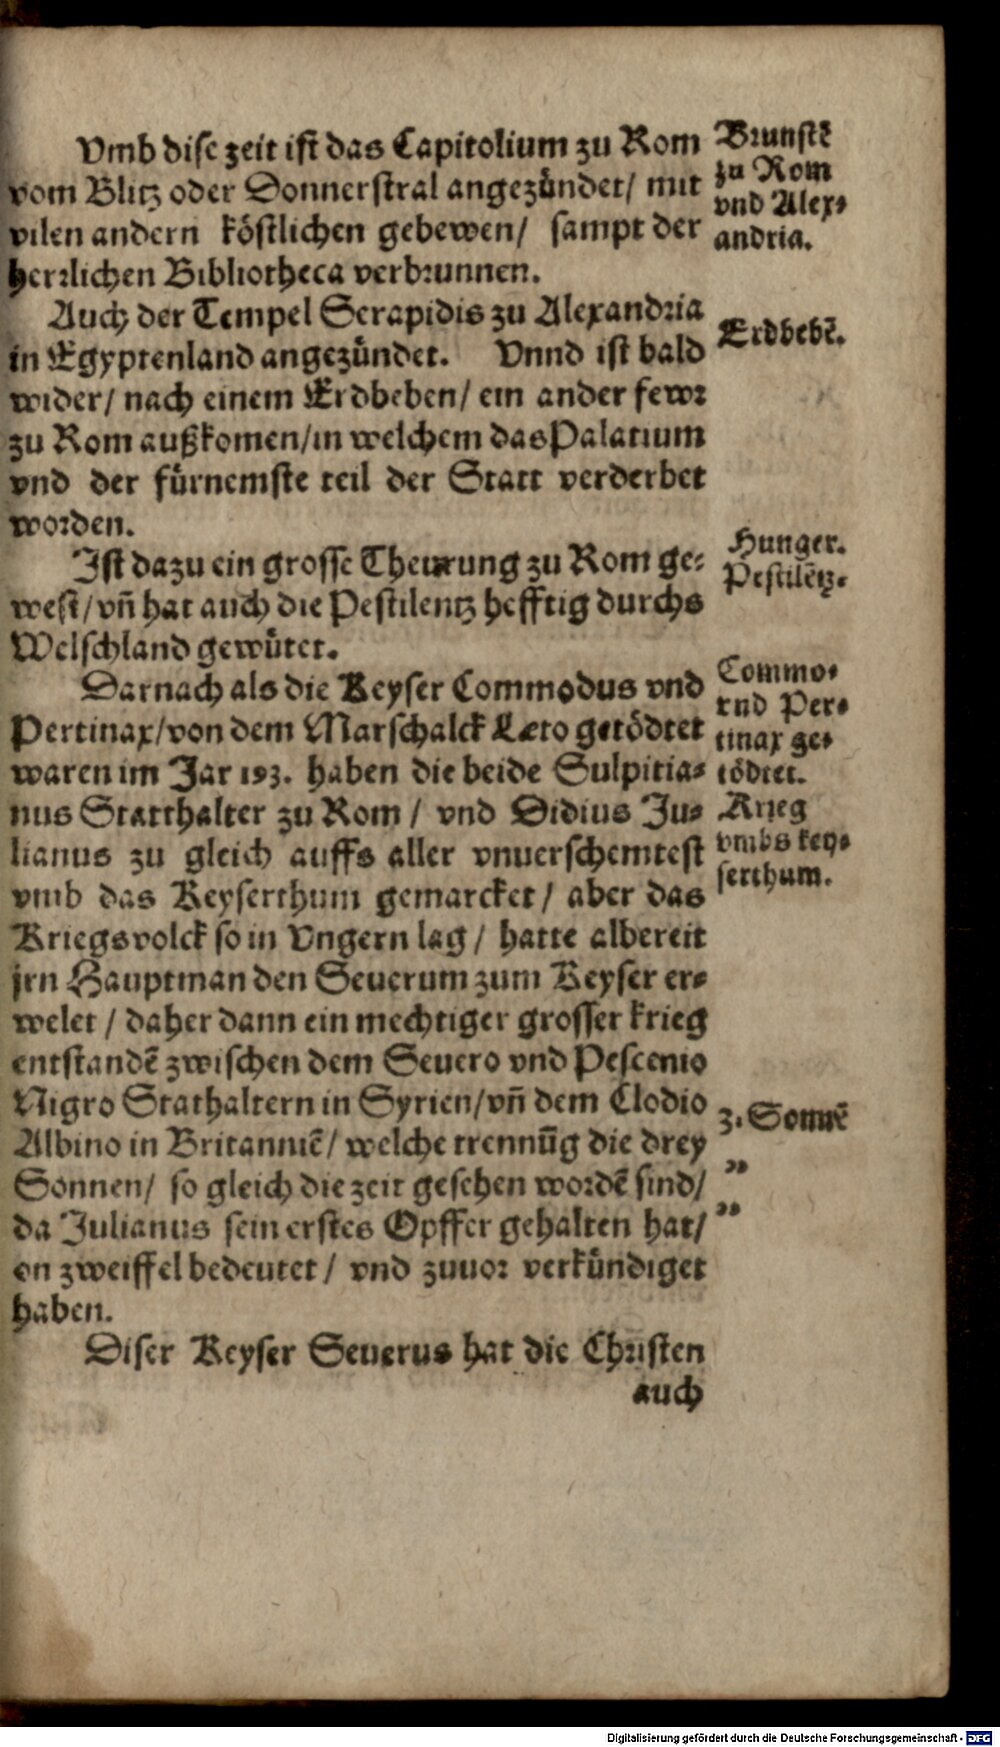 Vmb dise zeit ist das Capitolium zu Rom
vom Blitz oder Donnerstral angezündet/ mit
vilen andern köstlichen gebewen/ sampt der
herrlichen Bibliotheca verbrunnen.
Auch der Tempel Serapidis zu Alexandria
in Egyptenland angezündet. Vnnd ist bald
wider/ nach einem Erdbeben/ ein ander fewr
zu Rom außkomen/in welchem das Palatium
vnd der fürnemste teil der Statt verderbet
worden.
Ist dazu ein grosse Thewrung zu Rom ge-
west/vñ hat auch die Pestilentz hefftig durchs
Welschland gewütet.
Darnach als die Keyser Commodus vnd
Pertinax/von dem Marschalck Læto getödtet
waren im Jar 193. haben die beide Sulpitia-
nus Statthalter zu Rom/ vnd Didius Ju-
lianus zu gleich auffs aller vnuerschemtest
vmb das Keyserthum gemarcket/ aber das
Kriegsvolck so in Vngern lag/ hatte albereit
jrn Hauptman den Seuerum zum Keyser er-
welet/ daher dann ein mechtiger grosser krieg
entstandẽ zwischen dem Seuero vnd Pescenio
Nigro Stathaltern in Syrien/vñ dem Clodio
Albino in Britanniẽ/ welche trennũg die drey
Sonnen/ so gleich die zeit gesehen wordẽ sind/
da Julianus sein erstes Opffer gehalten hat/
on zweiffel bedeutet/ vnd zuuor verkündiget
haben.
Diser Keyser Seuerus hat die Christen
auch
Brunstẽ
zu Rom
vnd Alex-
andria.
Erdbebẽ.
Hunger.
Pestilẽtz.
Commo-
vnd Per-
tinax ge-
tödtet.
Krieg
vmbs key-
serthum.
3. Sonnẽ
„
„
Digitalisierung gefördert durch die Deutsche Forschungsgemeinschaft - DFG